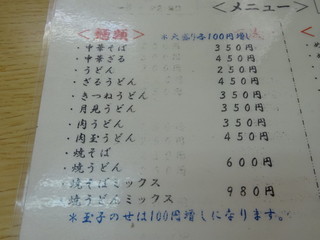 <メニュー>
<麺類> *大盛り各100円増し
・中華そば 350円
・中華ざる 450円
・うどん 250円
・ざるうどん 450円
・きつねうどん 350円
・月見うどん 350円
・肉うどん 350円
・肉玉うどん 450円
・焼そば
・焼うどん 600円
・焼そばミックス
・焼うどんミックス 980円
*玉子のせは100円増しになります。